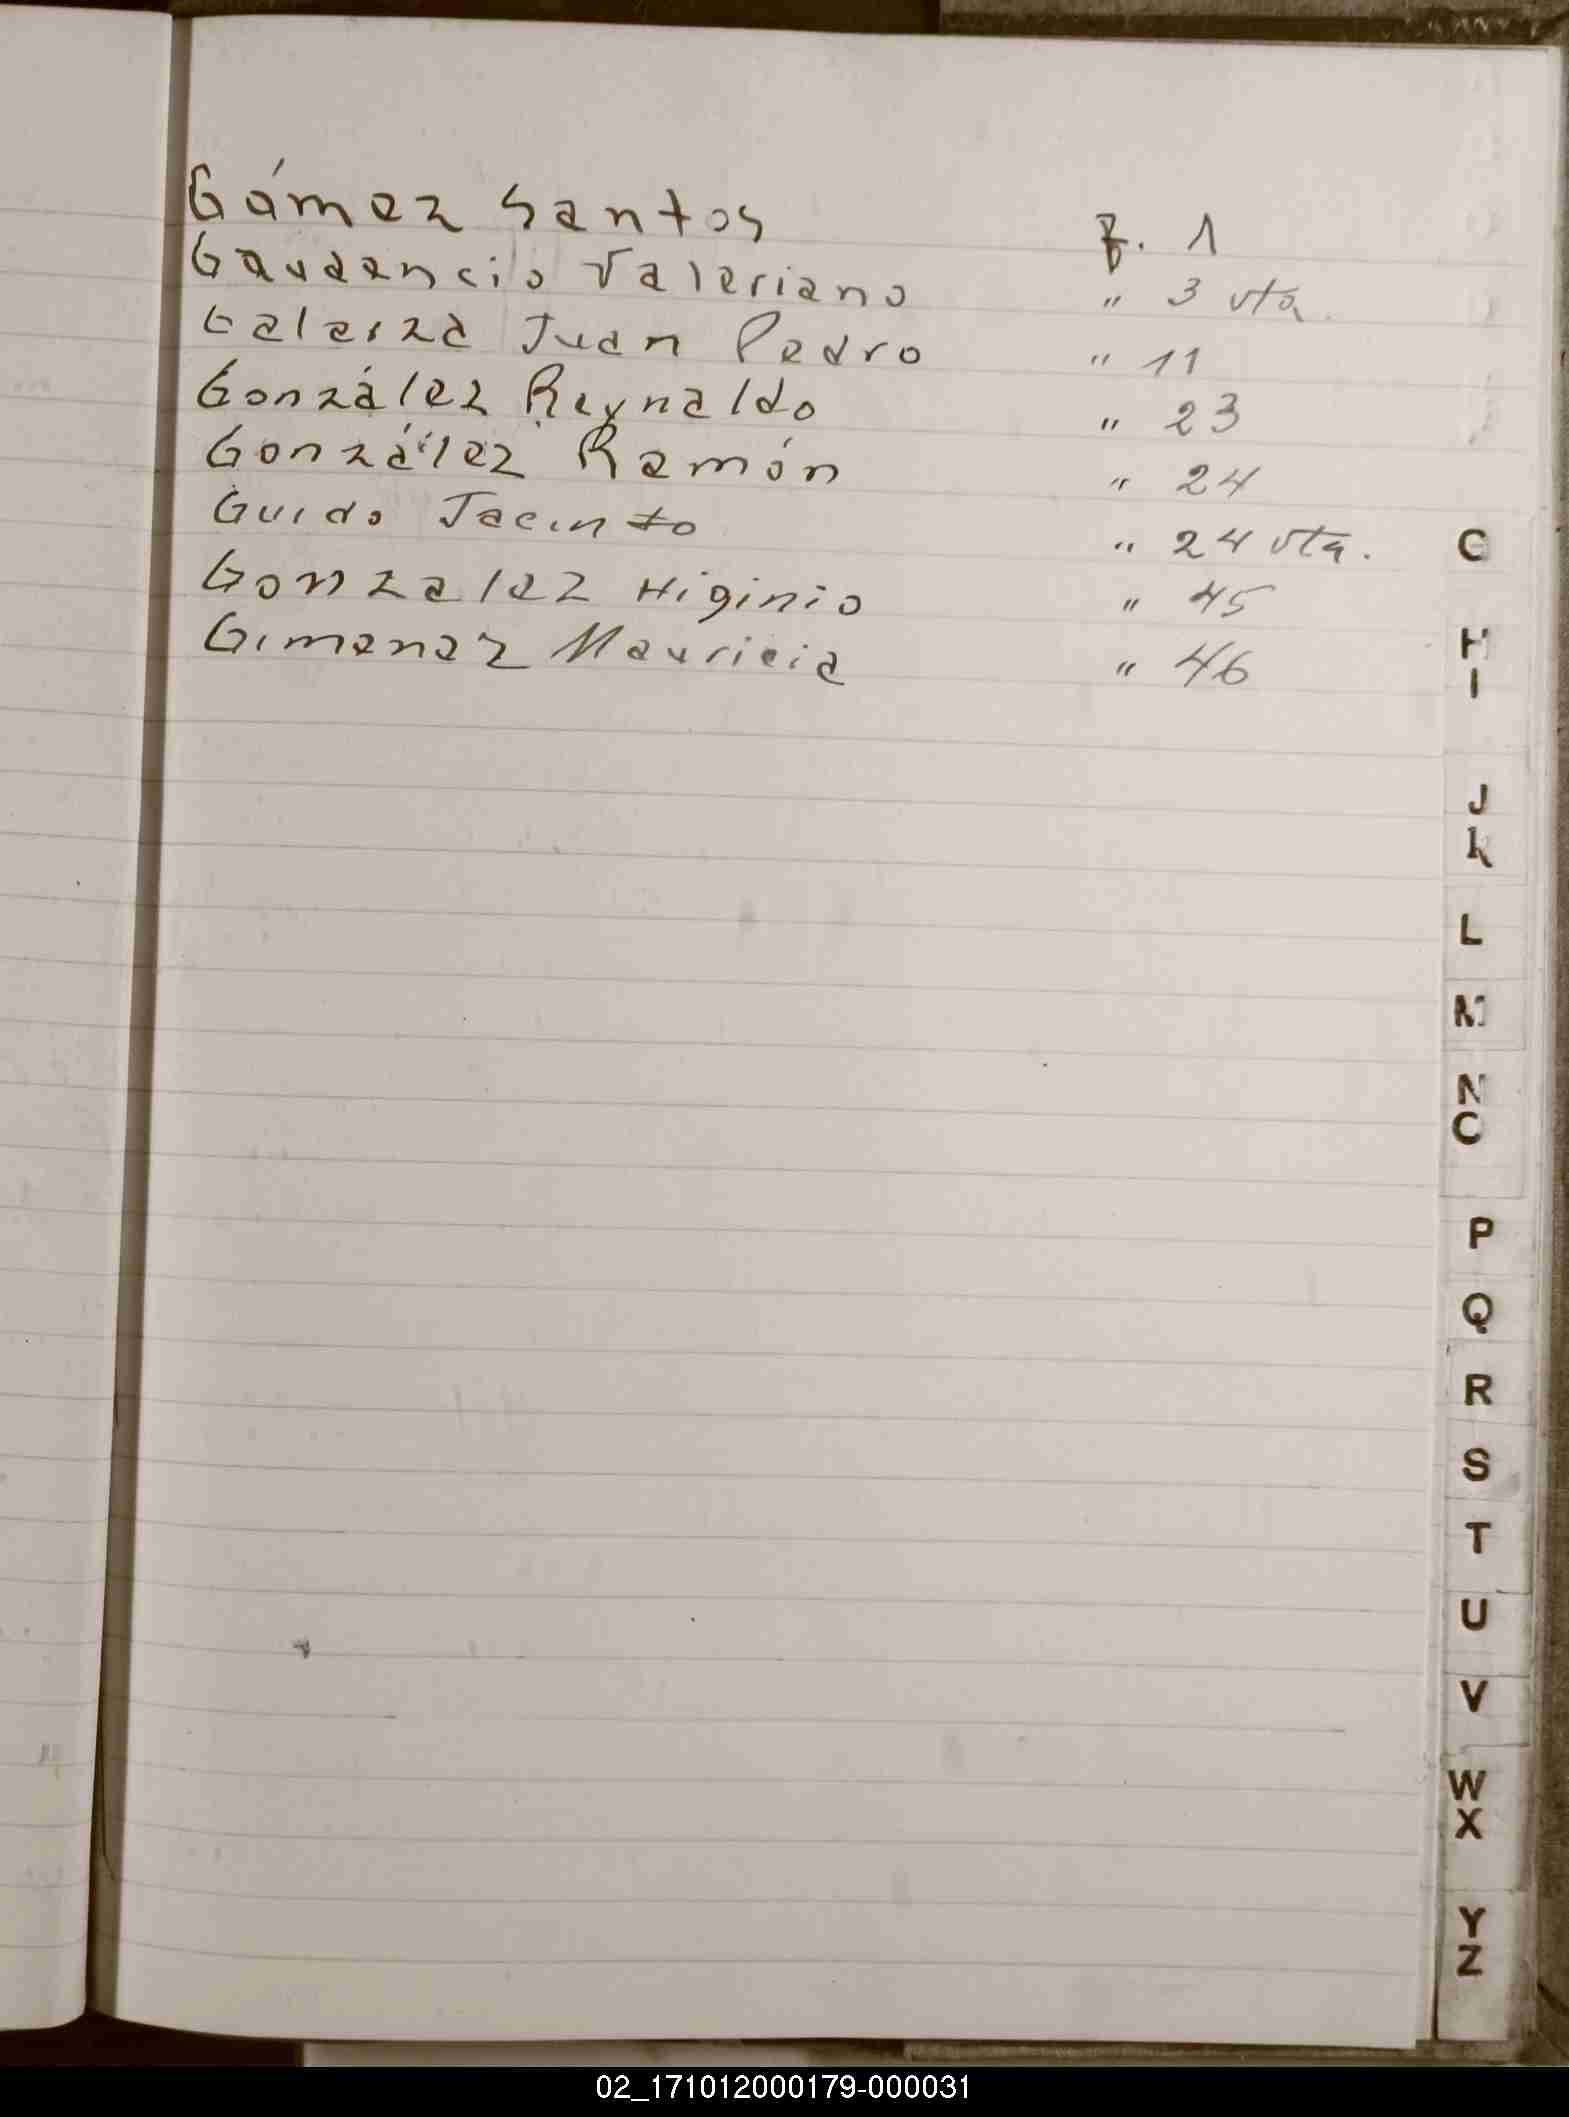 Gámez Santos F. 1
Gaudencio Valeriano " 3 vta.
Galarza Juan Pedro " 11
González Reynaldo " 23
González Ramón " 24
Guido Jacinto " 24 vta.
Gonzalez Higinio " 45
Gimenez Mauricia " 46
G
H
I
J
K
L
M
N
O
P
Q
R
S
T
U
V
W
X
Y
Z
02_171012000179-000031